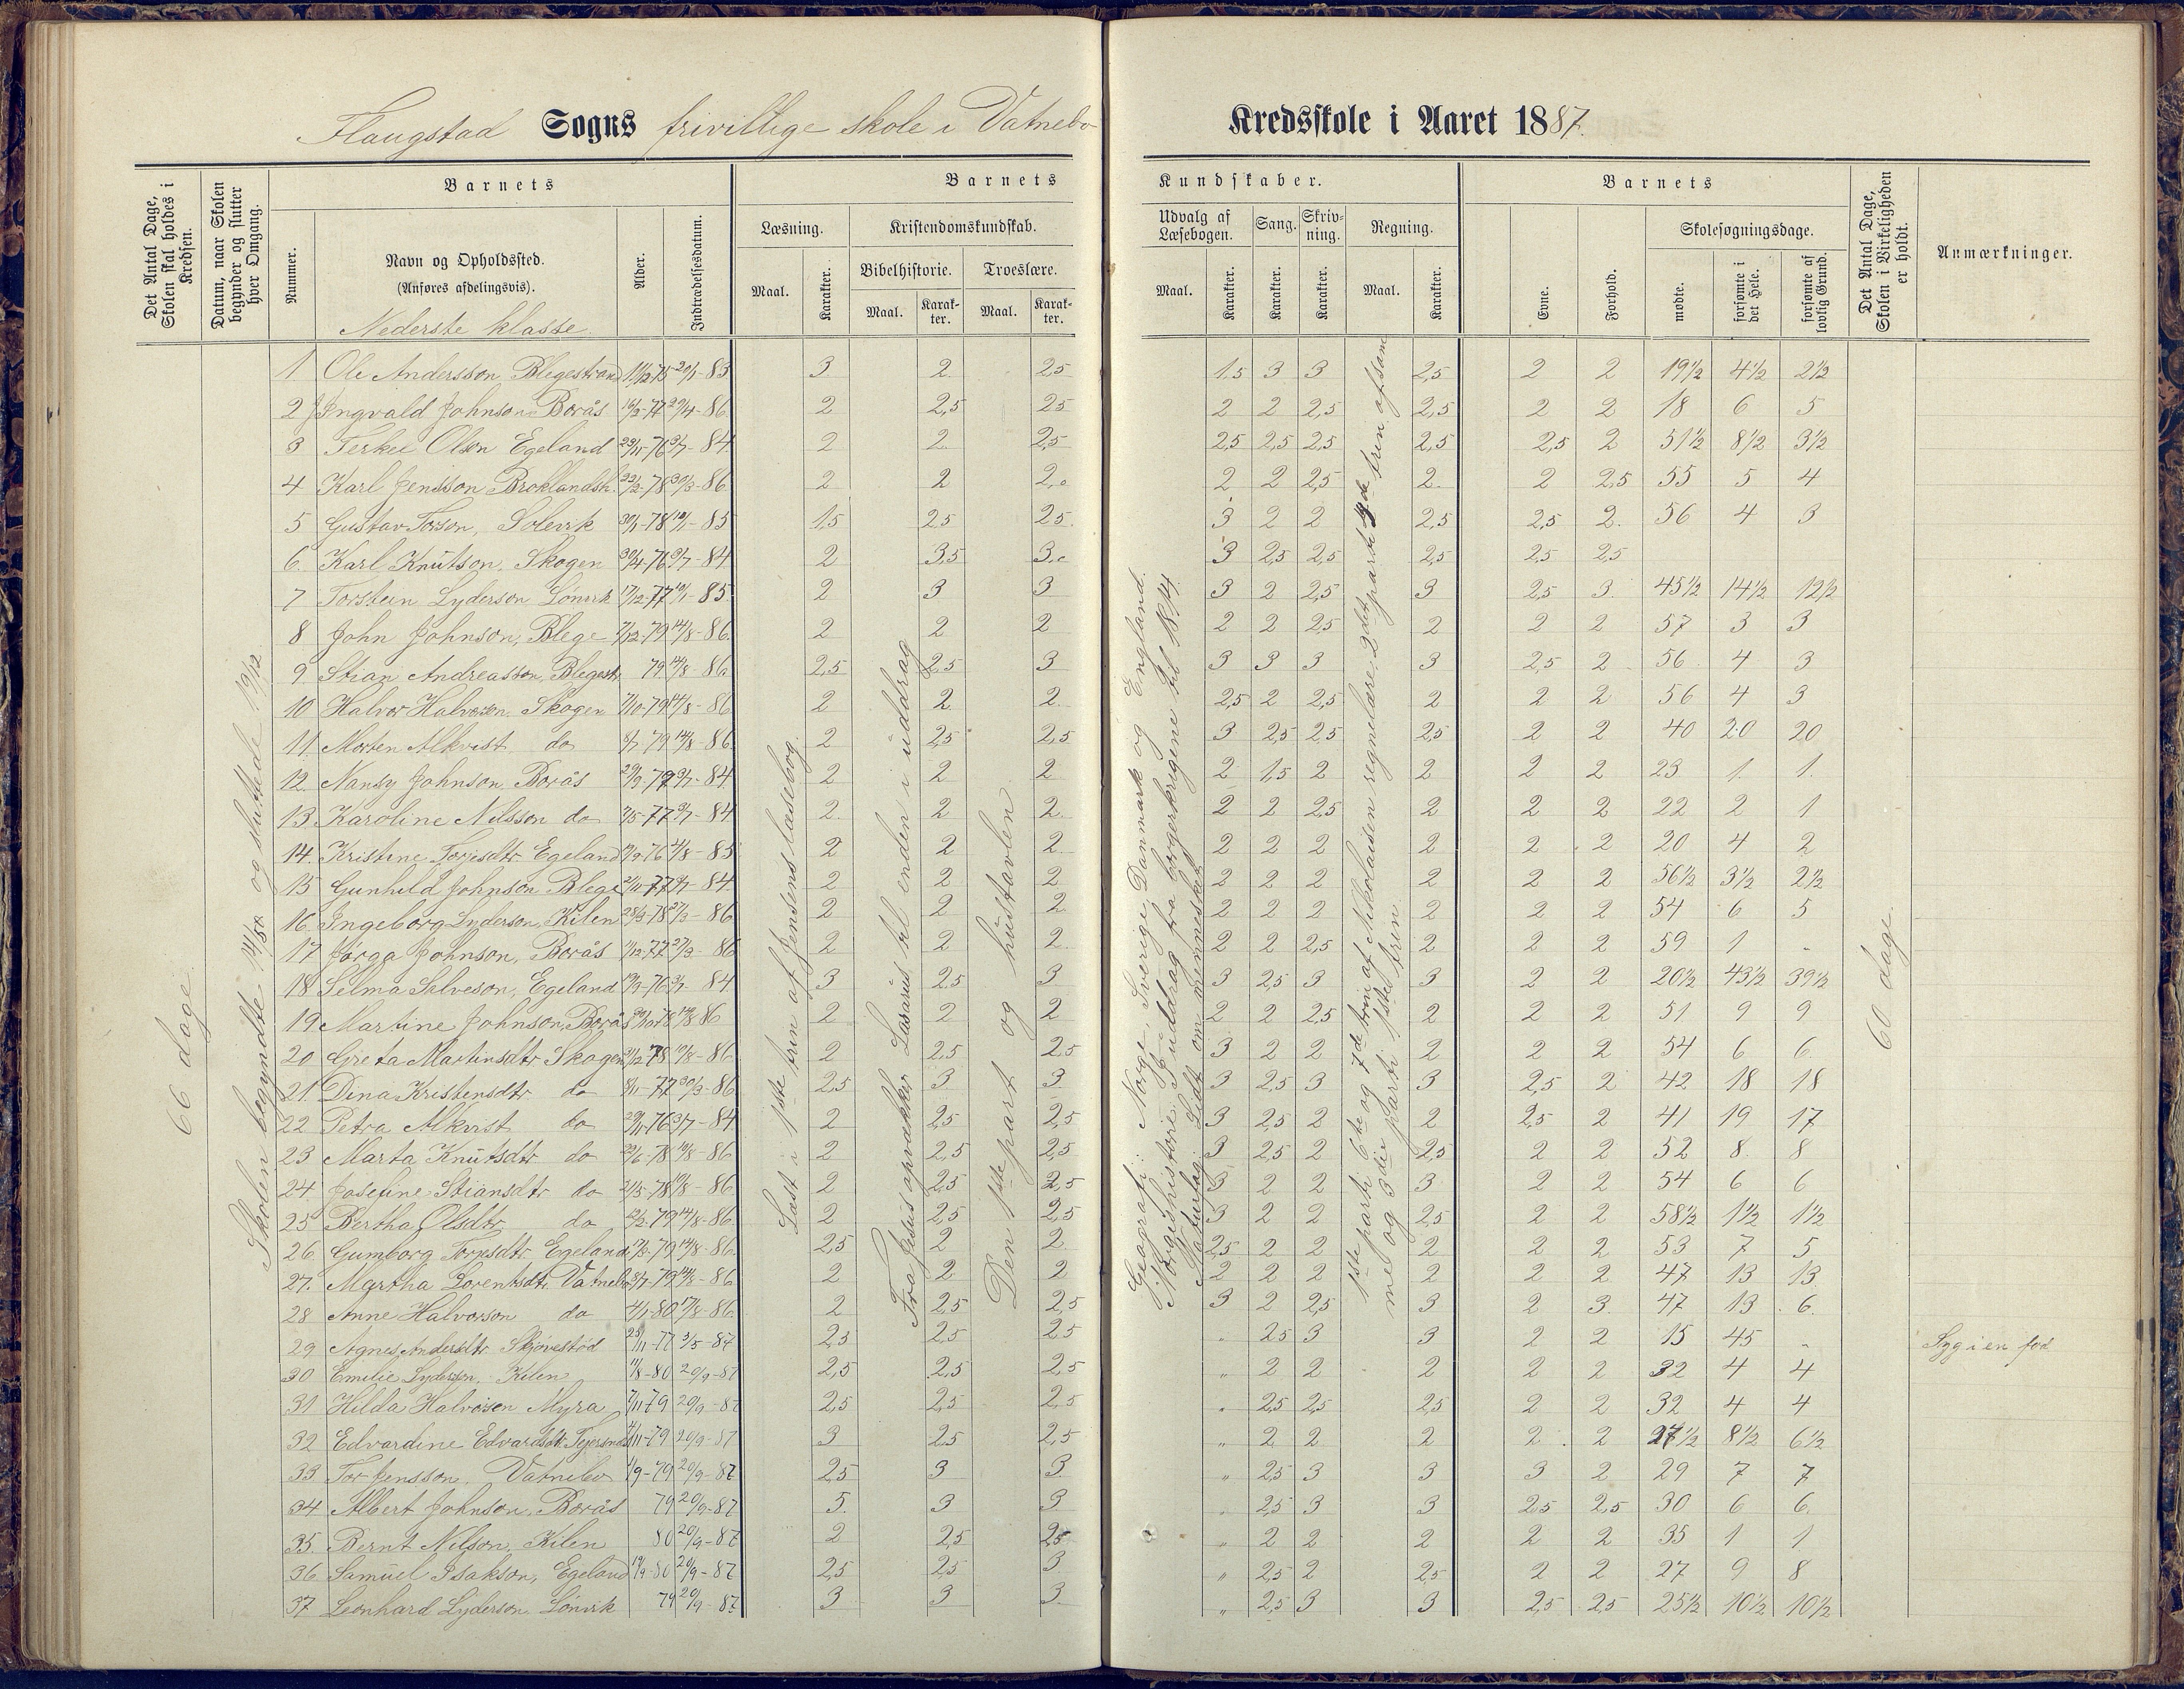 Flaugstad Sogns frivillige skole i Vatnebo Kredsskole i Aaret 1887.
Det Antal Dage, Skolen skal holdes i Kredsen.
Datum, naar Skolen begynder og slutter hver Omgang.
Barnets
Nummer.
Navn og Opholdssted.
(Anføres afdelingsvis).
Nederste klasse.
Alder.
Indtrædelsesdatum.
Barnets Kundskaber.
Læsning.
Maal.
Karakter.
Kristendomskundskab.
Bibelhistorie.
Maal.
Karakter.
Troeslære.
Maal.
Karakter.
Udvalg af Læsebogen.
Maal.
Karakter.
Sang.
Karakter.
Skrivning.
Karakter.
Regning.
Maal.
Karakter.
Barnets
Evne.
Forhold.
Skolesøgningsdage.
mødte.
forsømte i det Hele.
forsømte af lovlig Grund.
Det Antal Dage, Skolen i Virkeligheden er holdt.
Anmærkninger.
66 dage
Skolen begyndte og sluttede 19/12
Læst i 1ste trin af Jensens læsebog.
Fra Jesus opvækker Lasarus til enden i uddrag
Den 1ste part og hustavlen
Geografi: Norge, Sverige, Danmark og England.
Norgeshistorie: I uddrag fra borgerkrigene til 1814.
Naturfag: Lidt om mennesket
1ste parti 6te og 7de trin af Nikolaisen regnelære, 2det parti trin af sam
me og 3die parti 1ste trin
60 dage.
1 Ole Andersson Blegestrand 11/12-75 20/1-83 3 2 2,5 1,5 3 3 2,5 2 2 19½ 4½ 2½
2 Ingvald Johnson Borås 16/3-77 29/4-86 2 2,5 2,5 2 2 2,5 2,5 2 2 18 6 5
3 Terkel Olsen Egeland 23/11-76 3/7-84 2 2 2,5 2,5 2,5 2,5 2,5 2,5 2 51½ 8½ 3½
4 Karl Jensson Broklandsh. 22/2-78 30/3-86 2 2 2,0 2 2 2,5 2 2 2,5 55 5 4
5 Gustav Torson, Solevik 30/1-78 12/1-85 1,5 2,5 2,5 3 2 2 2,5 2,5 2 56 4 3
6 Karl Knutson, Skogen 30/4-76 3/7-84 2 3,5 3,0 3 2,5 2,5 2,5 2,5 2,5
7 Torstein Lyderson Lønvik 17/12-77 12/1-85 2 3 3 3 2 2,5 3 2,5 3 45½ 14½ 12½
8 John Johnson, Blege 7/12-79 14/8-86 2 2 2 2 2 2,5 2 2 2 57 3 3
9 Stian Andreasson, Blegestr. 79 14/8-86 2,5 2,5 3 3 3 3 3 2,5 2 56 4 3
10 Halvor Halvorson Skogen 7/10-79 14/8-86 2 2 2 2,5 2 2,5 2 2 2 56 4 3
11 Morten Alkvist do 8/7 79 14/8-86 2 2,5 2,5 3 2,5 2,5 2,5 2 2 40 20 20
12 Nansy Johnson Borås 29/3-79 3/7-84 2 2 2 2 1,5 2 2 2 2 23 1 1
13 Karoline Nilsson do 7/5-77 3/7-84 2 2 2 2 2 2,5 2 2 2 22 2 1
14 Kristine Torjesdtr. Egeland 76 4/8-85 2 2 2 2 2 2 2 2 2 20 4 2
15 Gunhild Johnson Blege 2/11-77 3/7-84 2 2 2 2 2 2 2 2 2 56½ 3½ 2½
16 Ingeborg Lyderson, Kilen 28/3-78 27/3-86 2 2 2 2 2 2 2 2 2 54 6 5
17 Jørga Johnson, Borås 11/12-77 27/3-86 2 2 2 2 2 2,5 2 2 2 59 1 "
18 Selma Salveson, Egeland 19/3-76 3/7-84 3 2,5 3 3 2,5 3 3 2 2 20½ 43½ 39½
19 Martine Johnson, Borås 30/10-78 14/8-86 2 2 2 2 2 2,5 2 2 2 51 9 9
20 Greta Martinsdtr. Skogen 31/12-78 19/8-86 2 2,5 2,5 3 2 2 2 2 2 54 6 6
21 Dina Kristensdtr. do 8/11-77 30/3-86 2,5 3 3 3 2,5 3 3 2,5 2 42 18 18
22 Petra Alkvist do 29/11-76 3/7-84 2 2,5 2,5 3 2,5 2 2 2,5 2 41 19 17
23 Marta Knutsdtr do 23/6-78 19/8-86 2 2,5 2,5 3 2,5 2 2,5 2 2 52 8 8
24 Josefine Stiansdtr do 3/5-78 19/8-86 2 2,5 2,5 3 2 2 3 2 2 54 6 6
25 Bertha Olsdtr do 22/2-79 14/8-86 2 2,5 2,5 3 2 2 2,5 2 2 58½ 1½ 1½
26 Gumborg Torjesdtr. Egeland 79 14/8-86 2,5 2 2 2,5 2 2 2 2 2 53 7 5
27 Martha Lorentsdtr. Vatnebo 3/7-79 14/8-86 2 2 2 2 2 2 2 2 2 47 13 13
28 Anne Halvorson do 4/1-80 17/8-86 2 2,5 2,5 3 2 2,5 3 2 3 47 13 6
29 Agnes Andersdtr. Skjøvestød 25/11-77 3/5-87 2,5 2,5 2,5 " 2,5 3 3 2 2 15 45 " Syg i en fod
30 Emilie Lyderson, Kilen 11/8-80 20/9-87 2,5 2,5 2,5 " 2 2 2 2 2 32 4 4
31 Hilda Halvorsen Myra 7/11-79 20/9-87 2,5 2,5 2,5 " 2,5 2,5 2,5 2 2 32 4 4
32 Edvardine Edvardsdtr. 4/11-79 20/9-87 3 2,5 2,5 " 2 2 2 2 2 27½ 8½ 6½
33 Tor Jensson, Vatnebo 1/9-79 20/9-87 2,5 3 3 " 2,5 3 3 3 2 29 7 7
34 Albert Johnson, Borås 79 20/9-87 5 3 3 " 2,5 3 3 2,5 2,5 30 6 6
35 Bernt Nilson, Kilen 80 20/9-87 2 2,5 2,5 " 2 2 2 2 2 35 1 1
36 Samuel Isakson, Egeland 19/9-80 20/9-87 2,5 2,5 3 " 2,5 2 2,5 2 2 27 9 8
37 Leonhard Lyderson Lønvik 79 20/9-87 3 3 3 " 2,5 3 3 2,5 2,5 25½ 10½ 10½